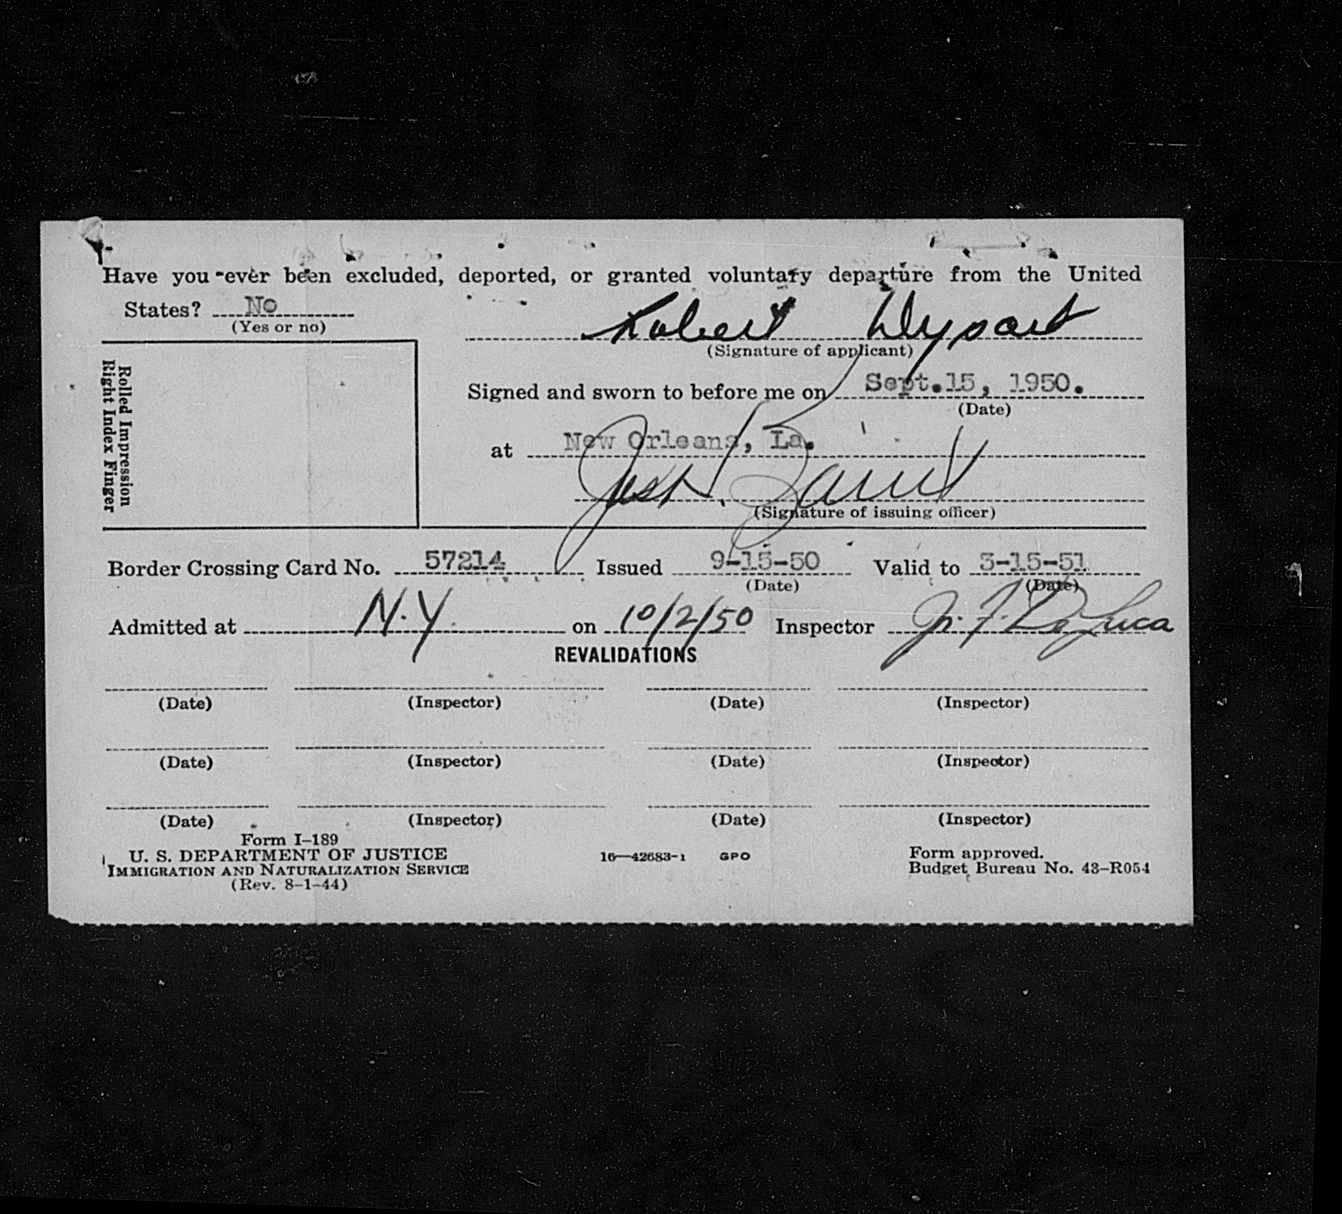 Have you ever been excluded, deported, or granted voluntary departure from the United
States? No
(Yes or no)
Robert Dysart
(Signature of applicant)
Rolled Impression
Right Index Finger
Signed and sworn to before me on Sept.15, 1950.
(Date)
at New Orleans, La.
(Signature of issuing officer)
Border Crossing Card No. 57214 Issued 9-15-50 Valid to 3-15-51
(Date) (Date)
Admitted at N.Y. on 10/2/50 Inspector DeLuca
REVALIDATIONS
(Date) (Inspector) (Date) (Inspector)
(Date) (Inspector) (Date) (Inspector)
(Date) (Inspector) (Date) (Inspector)
Form I-189
U. S. DEPARTMENT OF JUSTICE
IMMIGRATION AND NATURALIZATION SERVICE
(Rev. 8-1-44)
16—42683-1 GPO
Form approved.
Budget Bureau No. 43-R054